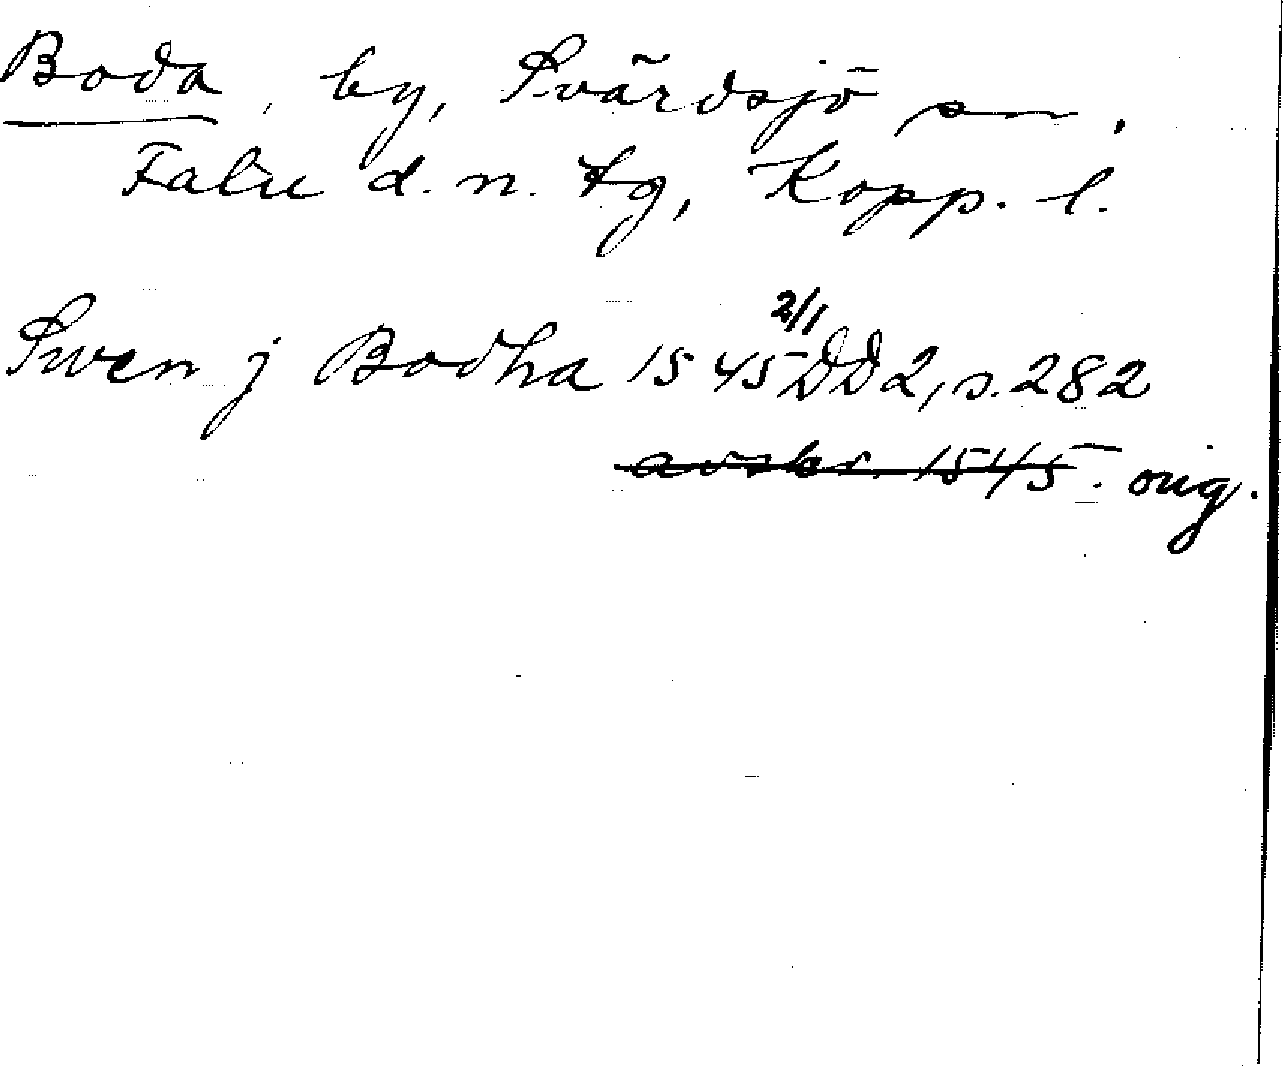 Boda, by, Svärdsjö sn,
Falu d. n. tg, Kopp. l.
Swen j Bodha 1545 2/1 DD2, s. 282
avskr. 1545. orig.